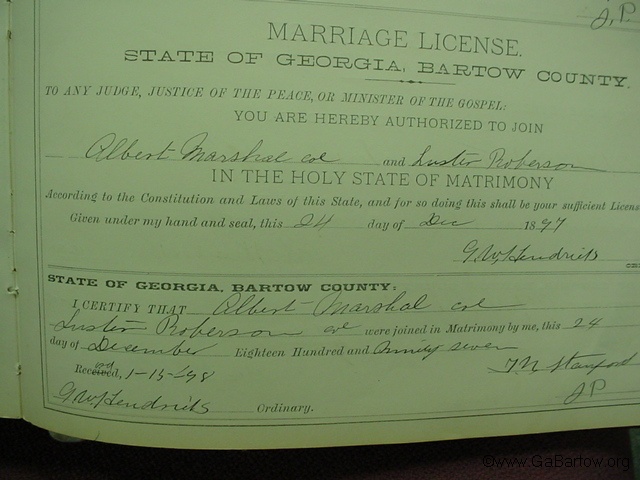 J, P.
MARRIAGE LICENSE.
STATE OF GEORGIA, BARTOW COUNTY.
TO ANY JUDGE, JUSTICE OF THE PEACE, OR MINISTER OF THE GOSPEL:
YOU ARE HEREBY AUTHORIZED TO JOIN
Albert Marshal col and Luster Roberson
IN THE HOLY STATE OF MATRIMONY
According to the Constitution and Laws of this State, and for so doing this shall be your sufficient License
Given under my hand and seal, this 24 day of Dec 1897
G. W. Hendricks
STATE OF GEORGIA, BARTOW COUNTY:
I CERTIFY THAT Albert Marshal col
Luster Roberson col were joined in Matrimony by me, this 24
day of December Eighteen Hundred and Ninety seven
Received, 1-15-98 T N Stanford
G. W. Hendricks Ordinary. J P
©www.GaBartow.org